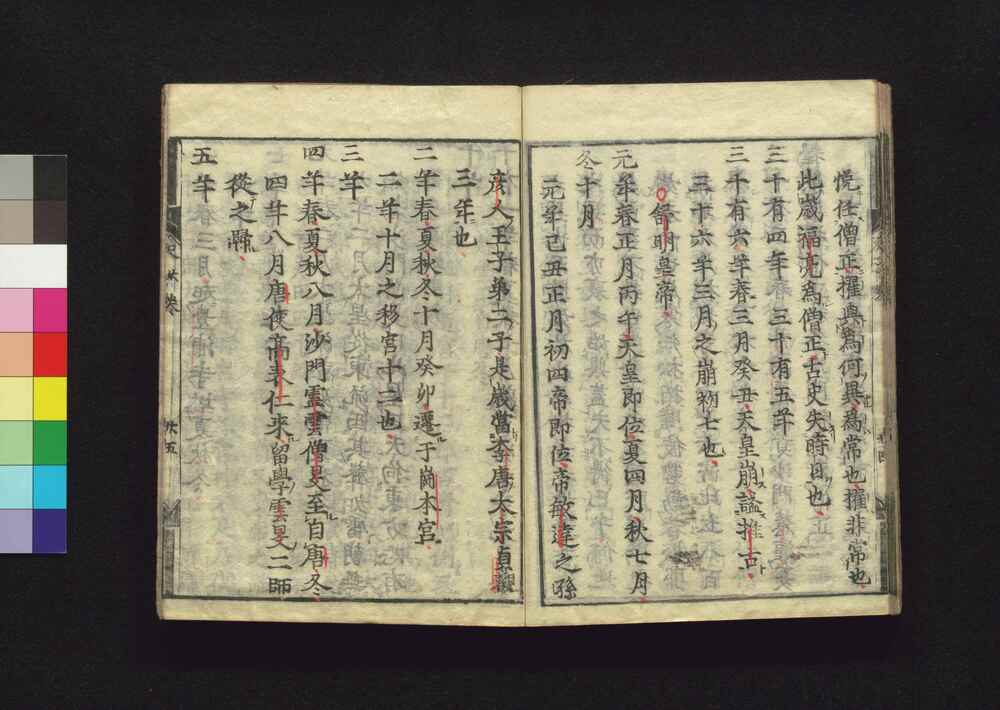 悦任僧正擢與爲何異爲常也擢非常也
此歳福亮爲僧正舌史失時日也
三十有四年春三十有五年
三十有六年春三月癸丑天皇崩謚推古
三十六年三月之崩
舒明皇帝
元年春正月丙午天皇即位夏四月秋七月
冬十月
元年己丑正月初四帝即位帝敏達之孫
彦人王子第二子是歳當李唐太宗貞觀
三年也
二年春夏秋冬十月癸卯遷于崗本宮
二年十月之移宮十二也
三年
四年春夏秋八月沙門靈雲僧旻至自唐冬
四年八月唐使高表仁來留學雲旻二師
從之歸
五年
廿五